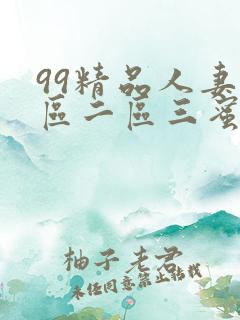 99精品人妻
區二區三蜜
柚子老君
未任同意禁止转载